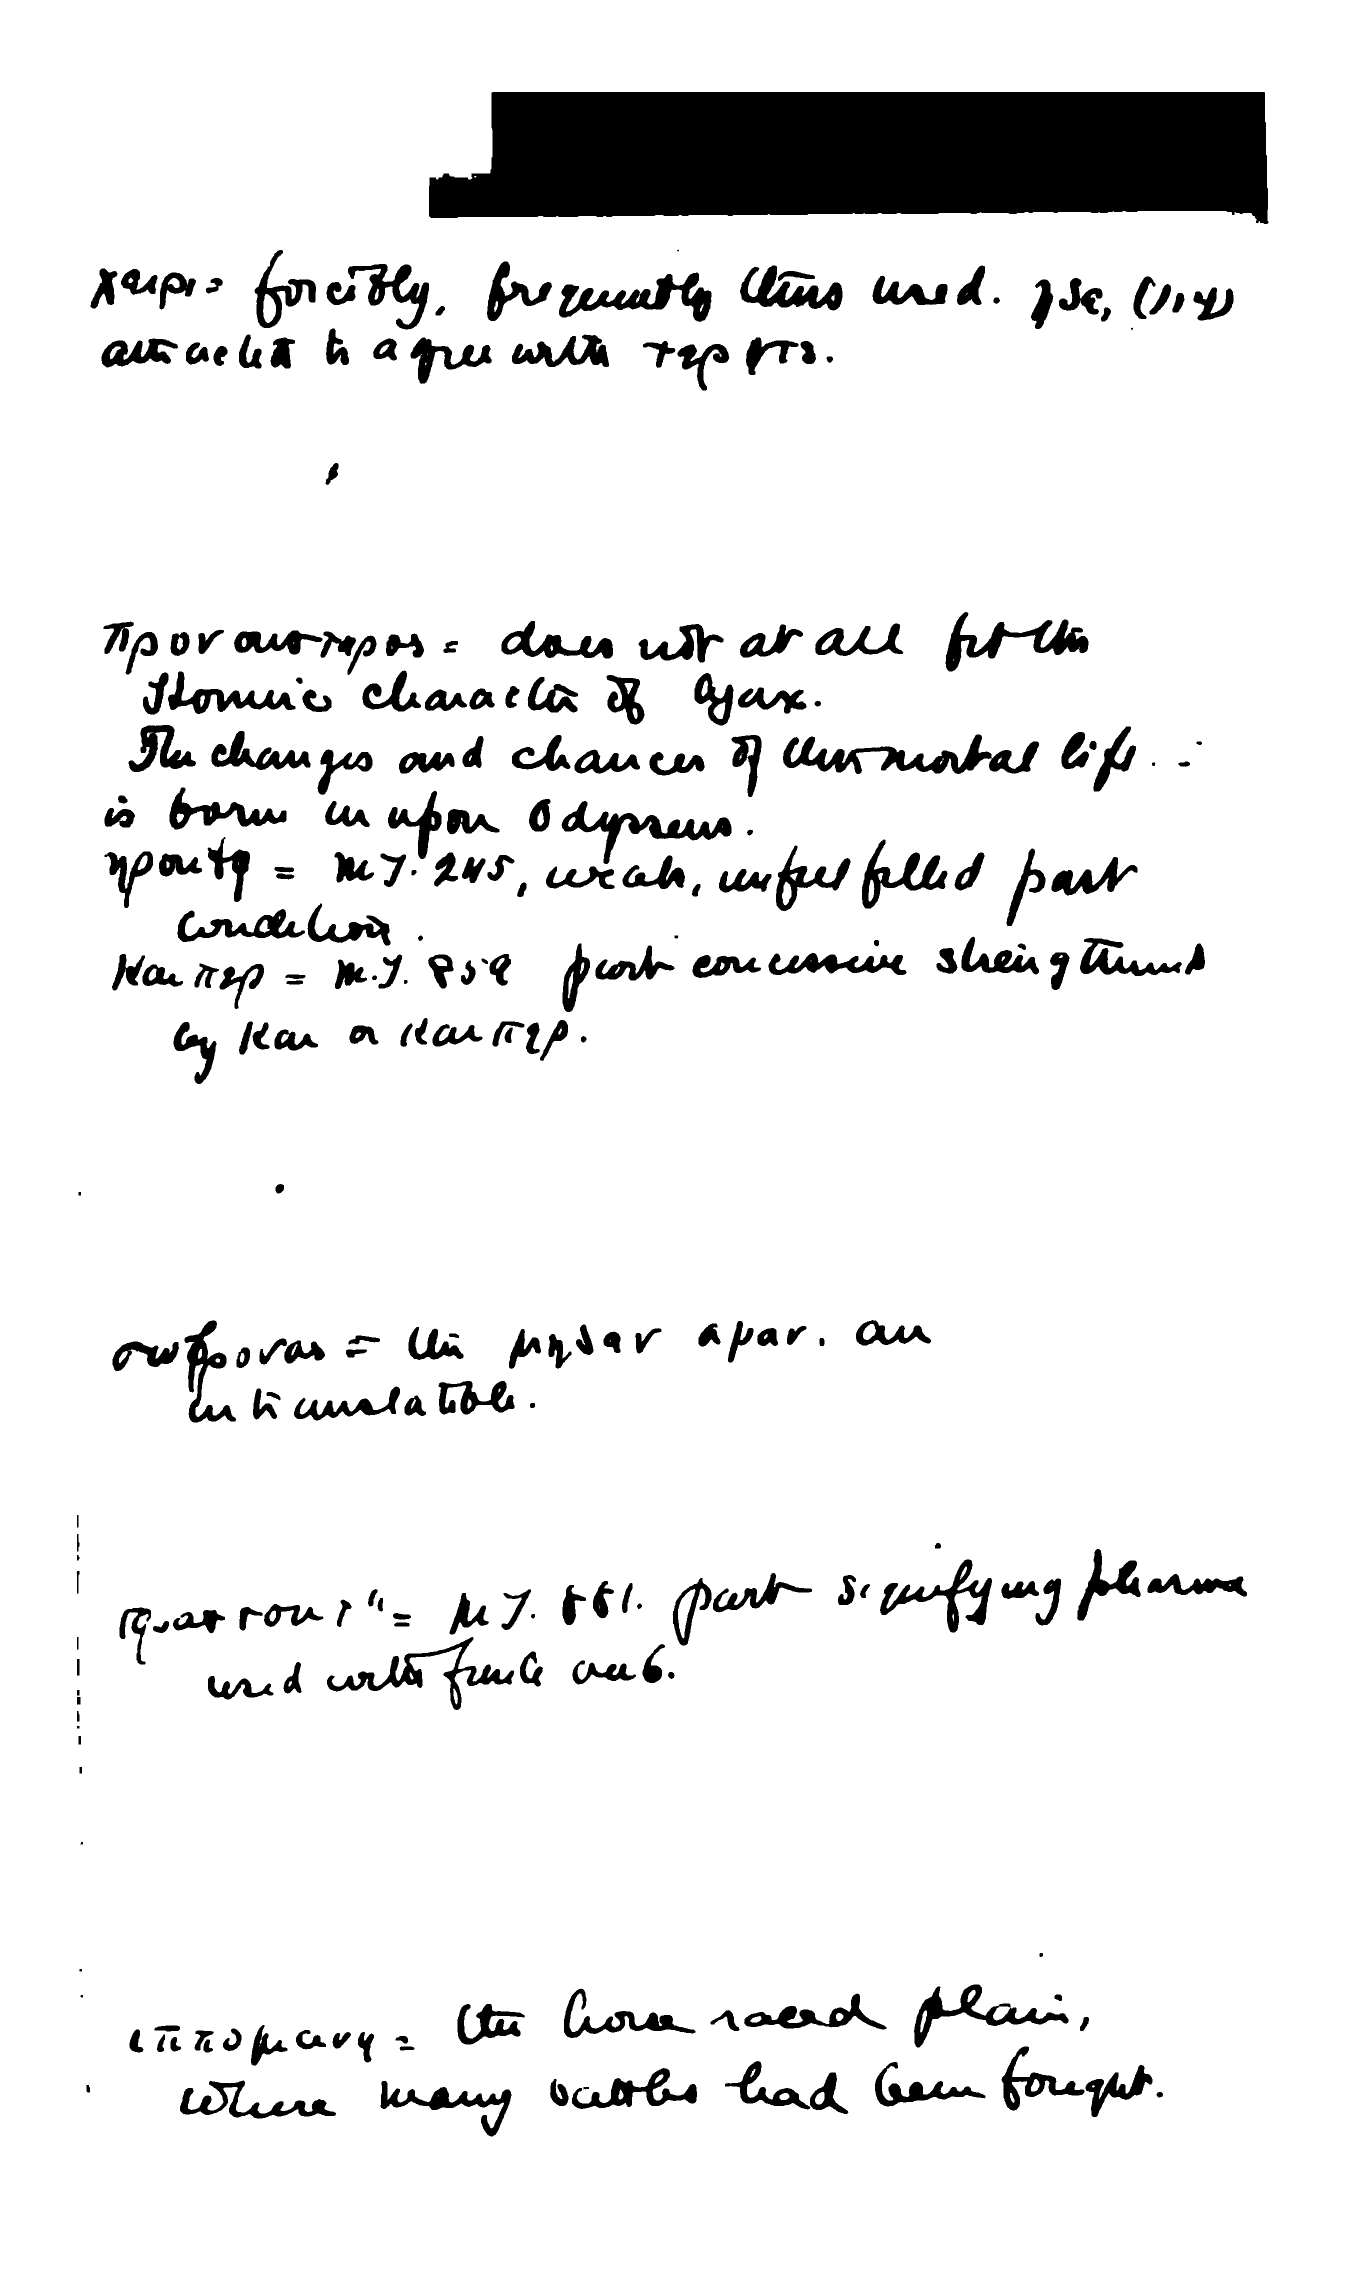 χειρι = forcibly, frequently thus used. ηδε, (114)
attracted to agree with τερψις.
προνουστερος = does not at all fit the
Homeric character of Ajax.
The changes and chances of this mortal life - -
is borne in upon Odysseus.
ηρουτη = M T. 245, weak, unfulfilled past
condition.
Καιπερ = M.T. 859 part concessive strengthened
by και or καιπερ.
σωφρονας = the μηδεν αγαν. an
untranslatable.
= M T. 881. part signifying
used with finite verb.
ιππομανη = the horse raced plain,
where many battles had been fought.